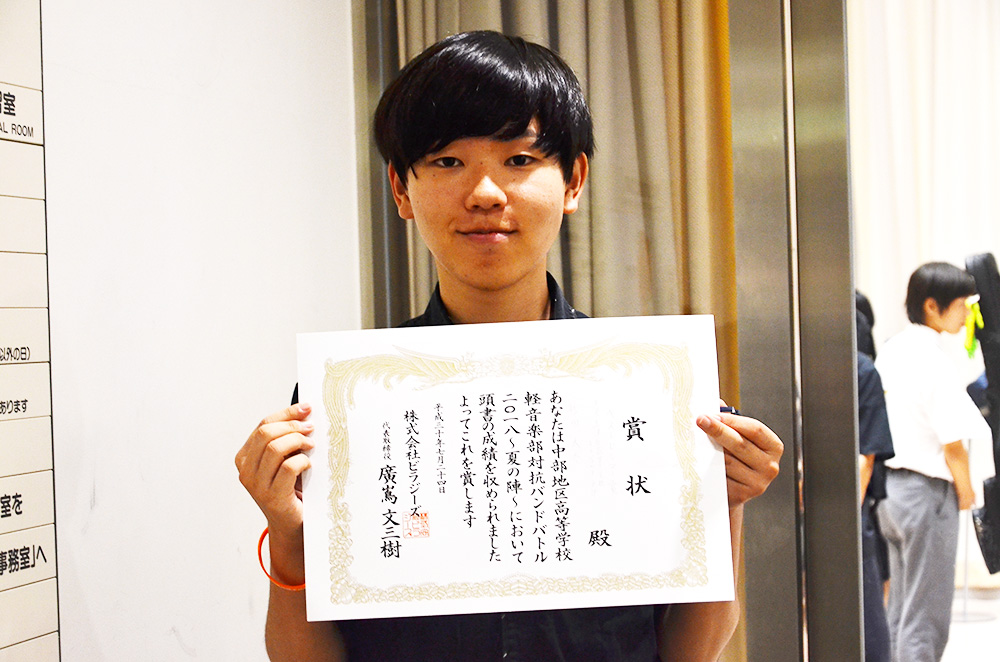 賞状
殿
あなたは中部地区高等学校
軽音楽部対抗バンドバトル
二〇一八~夏の陣~において
頭書の成績を収められました
よってこれを賞します
平成三十年七月二十四日
株式会社ビラジーズ
代表取締役 廣嶌 文三樹
室
AL ROOM
以外の日)
あります
室を
事務室」へ